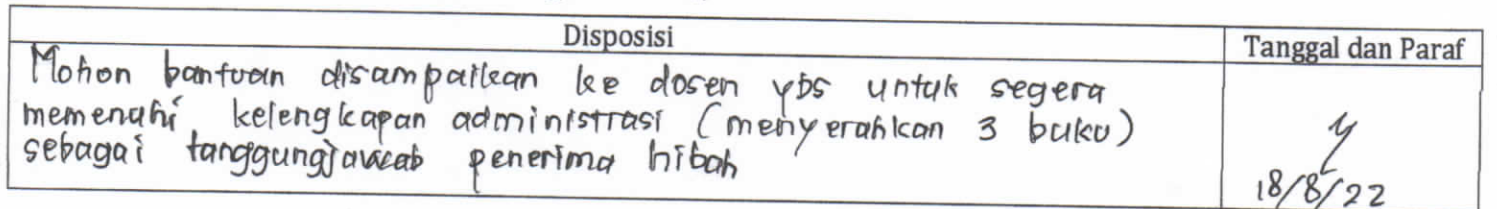 Disposisi
Tanggal dan Paraf
Mohon bantuan disampaikan ke dosen ybs untuk segera
memenuhi kelengkapan administrasi (menyerahkan 3 buku)
sebagai tanggungjawab penerima hibah
18/8/22